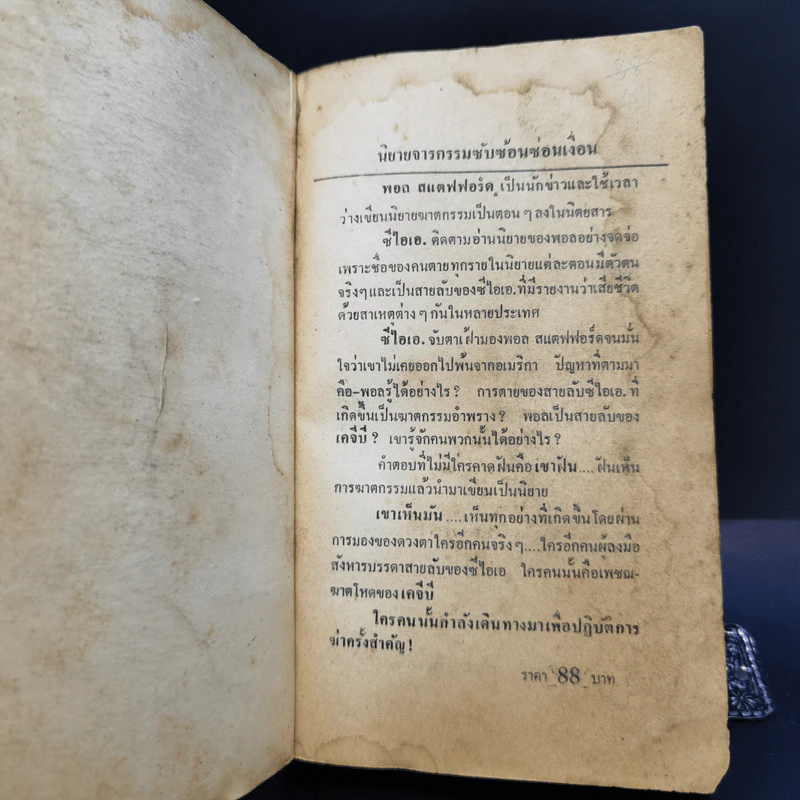 นิยายจารกรรมซับซ้อนซ่อนเงื่อน
พอล สแตฟฟอร์ด เป็นนักข่าวและใช้เวลา
ว่างเขียนนิยายฆาตกรรมเป็นตอน ๆ ลงในนิตยสาร
ซีไอเอ. ติดตามอ่านนิยายของพอลอย่างจดจ่อ
เพราะชื่อของคนตายทุกรายในนิยายแต่ละตอน มีตัวตน
จริงๆ และเป็นสายลับของซีไอเอ. ที่มีรายงานว่าเสียชีวิต
ด้วยสาเหตุต่าง ๆ กันในหลายประเทศ
ซีไอเอ. จับตาเฝ้ามองพอล สแตฟฟอร์ดจนมั่น
ใจว่าเขาไม่เคยออกไปพ้นจากอเมริกา ปัญหาที่ตามมา
คือ-พอลรู้ได้อย่างไร ? การตายของสายลับซีไอเอ. ที่
เกิดขึ้นเป็นฆาตกรรมอำพราง ? พอลเป็นสายลับของ
เคจีบี ? เขารู้จักคนพวกนั้นได้อย่างไร ?
คำตอบที่ไม่มีใครคาดฝันคือ เขาฝัน .... ฝันเห็น
การฆาตกรรมแล้วนำมาเขียนเป็นนิยาย
เขาเห็นมัน .... เห็นทุกอย่างที่เกิดขึ้นโดยผ่าน
การมองของดวงตาใครอีกคนจริง ๆ .... ใครอีกคนผู้ลงมือ
สังหารบรรดาสายลับของซีไอเอ ใครคนนั้นคือเพชฌ-
ฆาตโหดของ เคจีบี
ใครคนนั้นกำลังเดินทางมาเพื่อปฏิบัติการ
ฆ่าครั้งสำคัญ !
ราคา 88 บาท